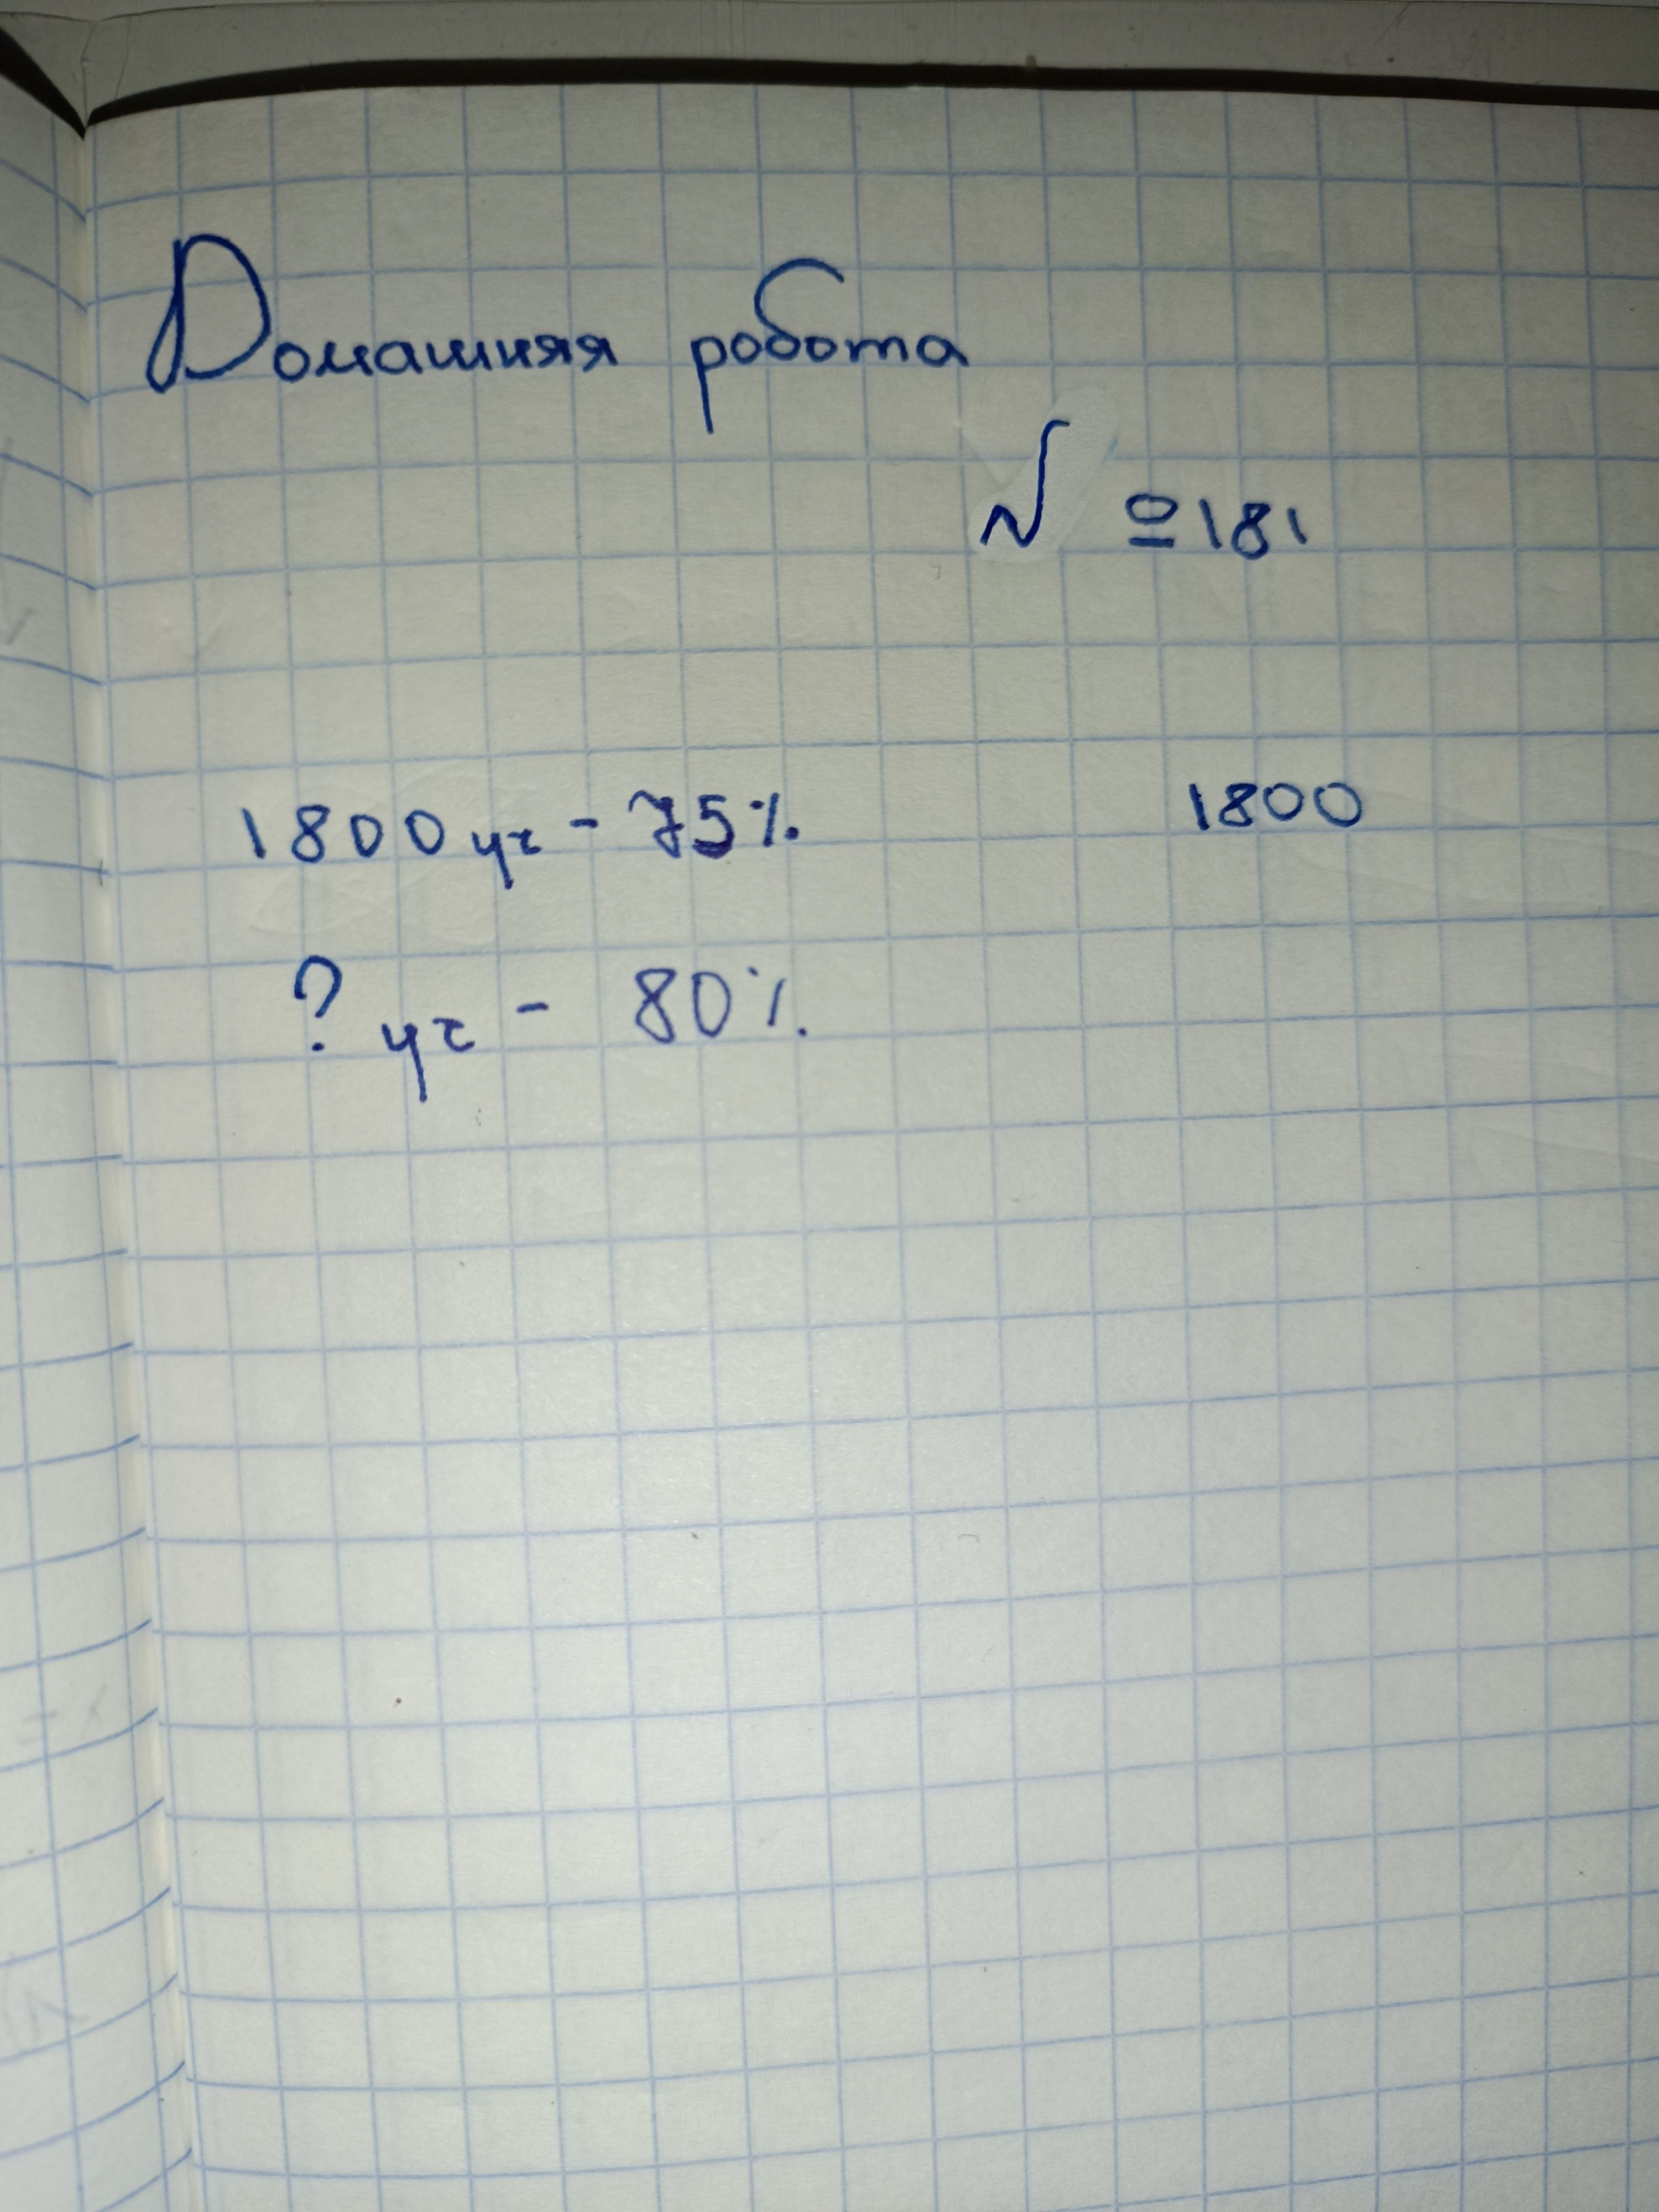 Домашняя робота
№ 181
1800 уч - 75% 1800
? уч - 80%